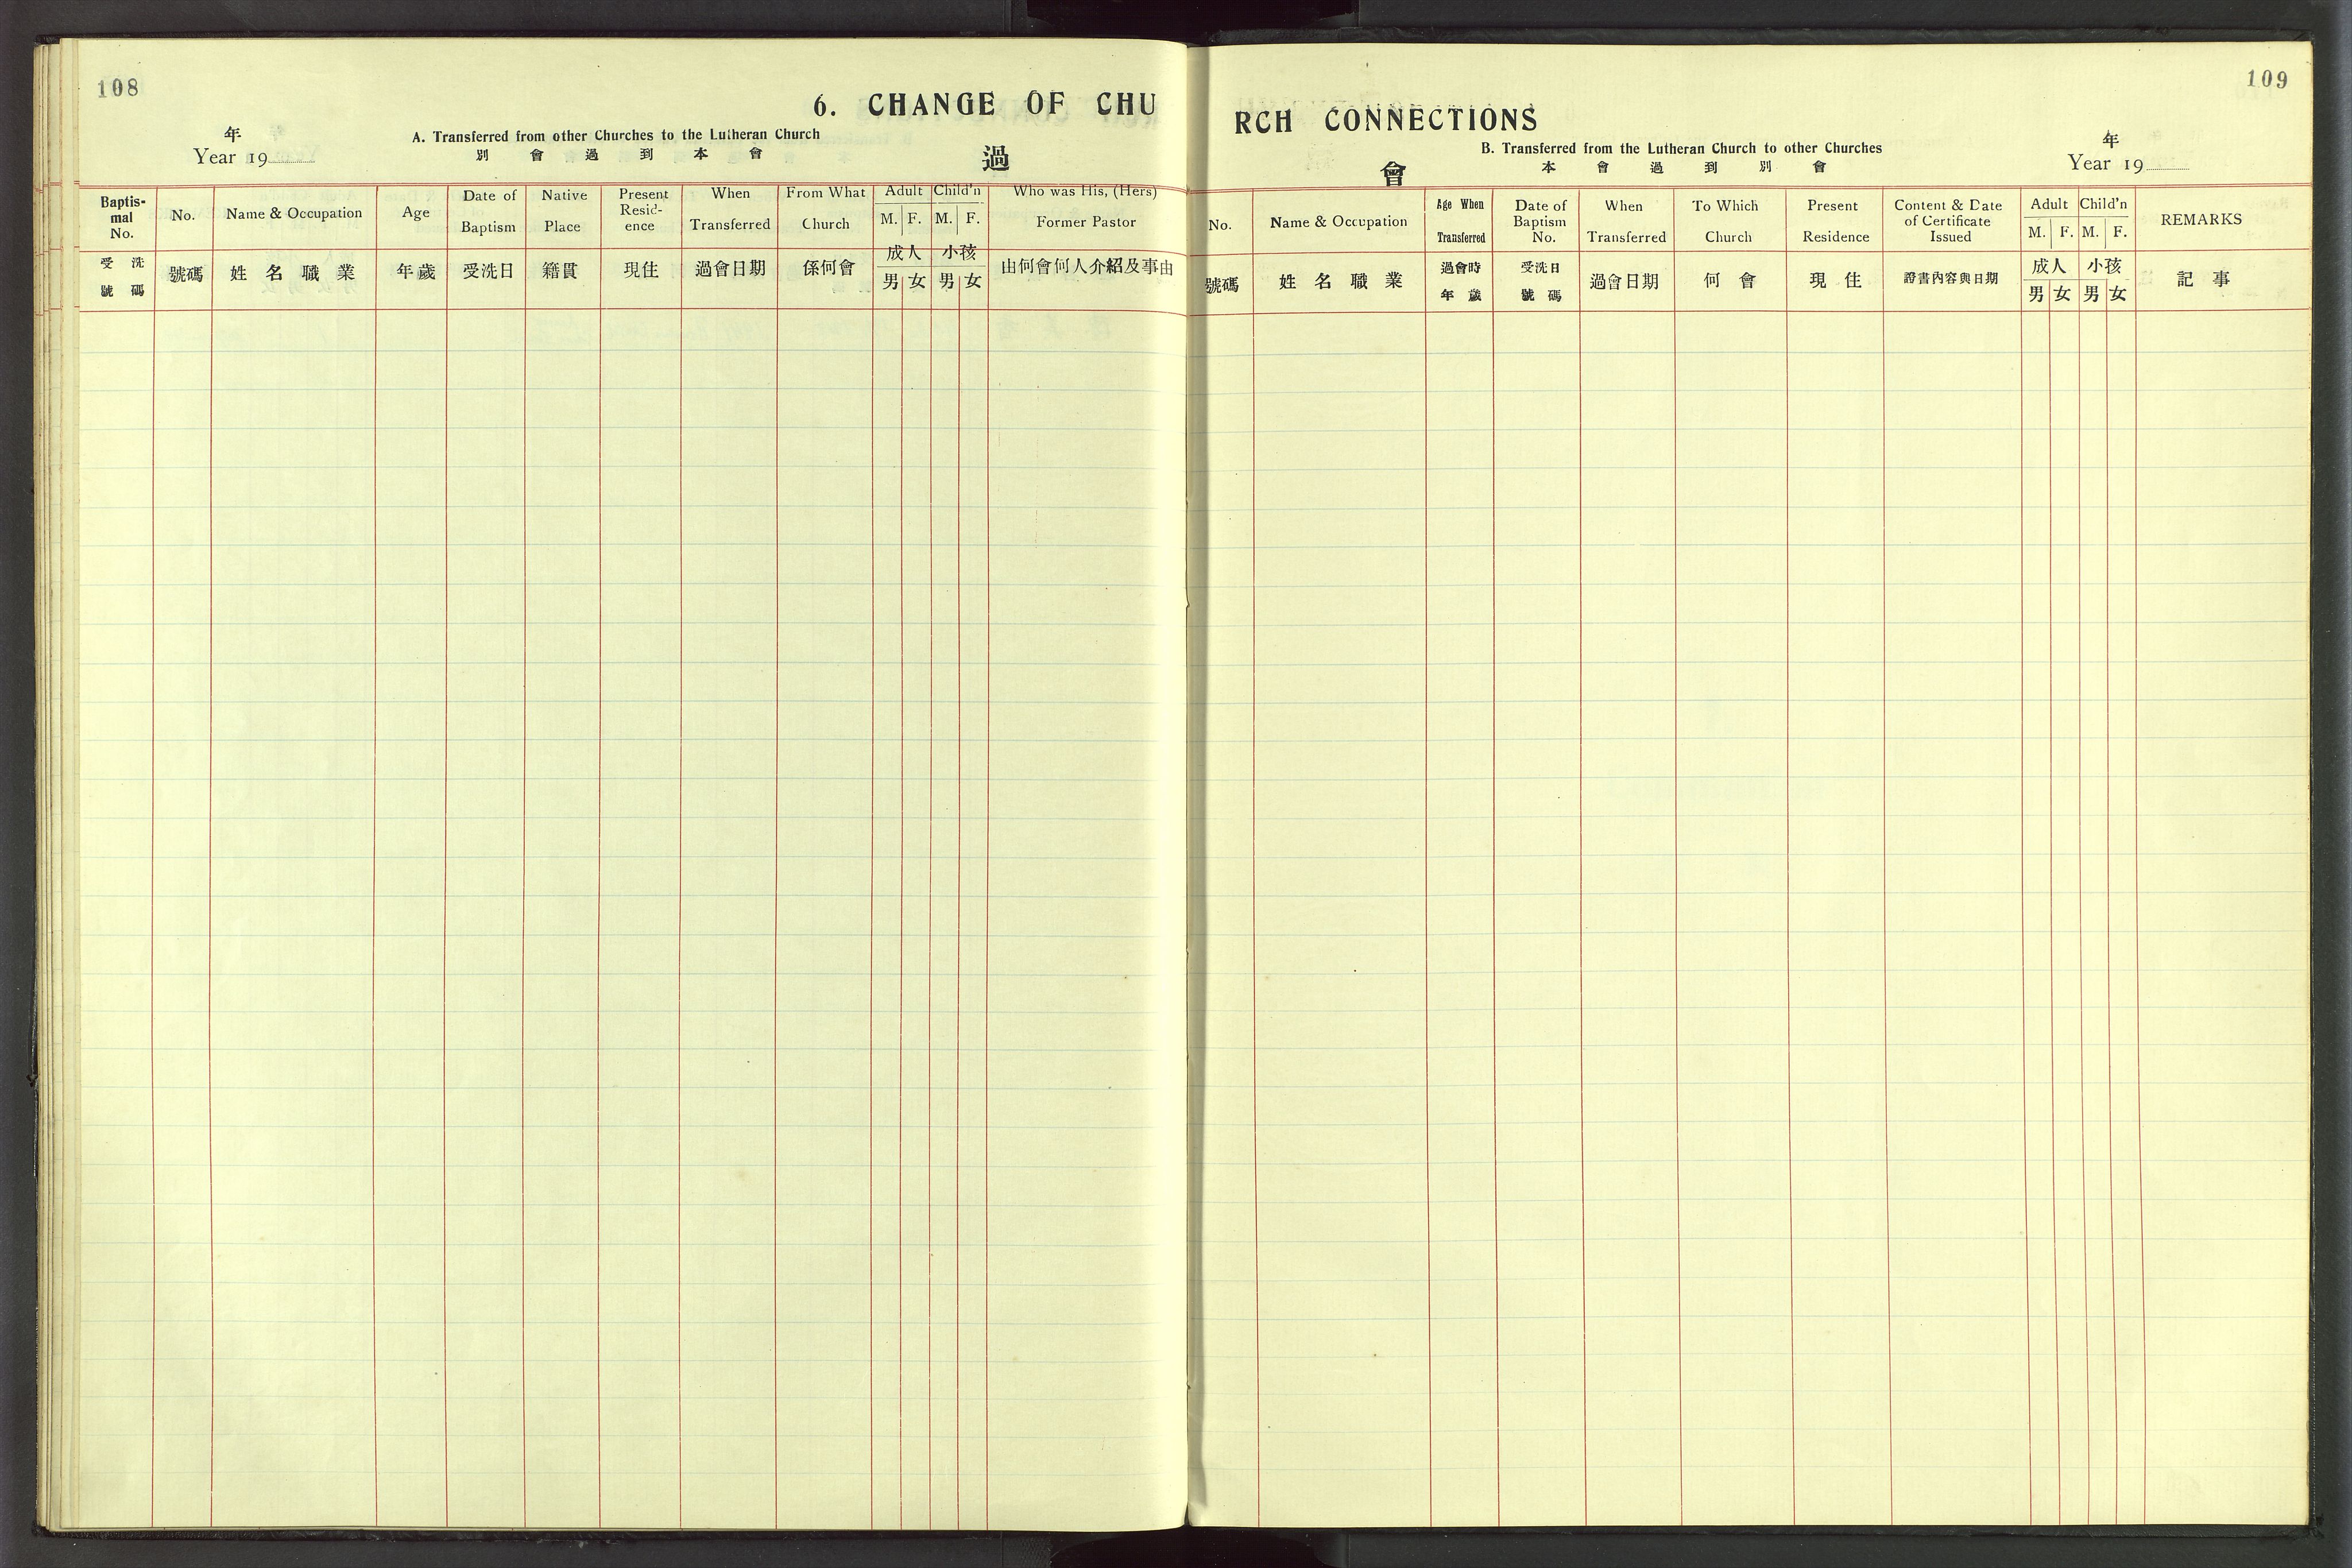 108
6. CHANGE OF CHU
年
Year 19
A. Transferred from other Churches to the Lutheran Church
別 會 過 到 本 會
過
Baptismal No. No. Name & Occupation Age Date of Baptism Native Place Present Residence When Transferred From What Church Adult M. F. Child'n M. F. Who was His, (Hers) Former Pastor
受洗號碼 號碼 姓名職業 年歲 受洗日 籍貫 現住 過會日期 係何會 成人 男 女 小孩 男 女 由何會何人介紹及事由
109
RCH CONNECTIONS
B. Transferred from the Lutheran Church to other Churches
本 會 過 到 別 會
會
年
Year 19
No. Name & Occupation Age When Transferred Date of Baptism No. When Transferred To Which Church Present Residence Content & Date of Certificate Issued Adult M. F. Child'n M. F. REMARKS
號碼 姓名職業 過會時年歲 受洗日號碼 過會日期 何會 現住 證書內容與日期 成人 男 女 小孩 男 女 記事